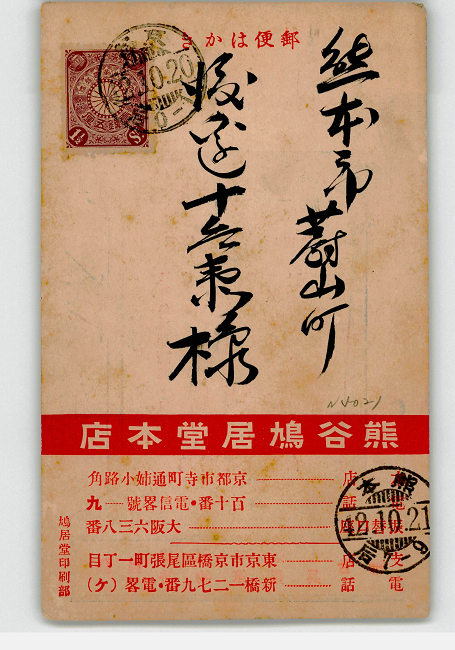 郵便はかき
熊本市蔚山町
渡邊十兵衛様
10.20
N4021
熊谷鳩居堂本店
店 京都市寺町通姉小路角
電話 百十番・電信畧號一九
振替口座 大阪六三八番
支店 東京市京橋區尾張町一丁目
電話 新橋一二七九番・電畧(ケ)
鳩居堂印刷部
熊本
42.10.21